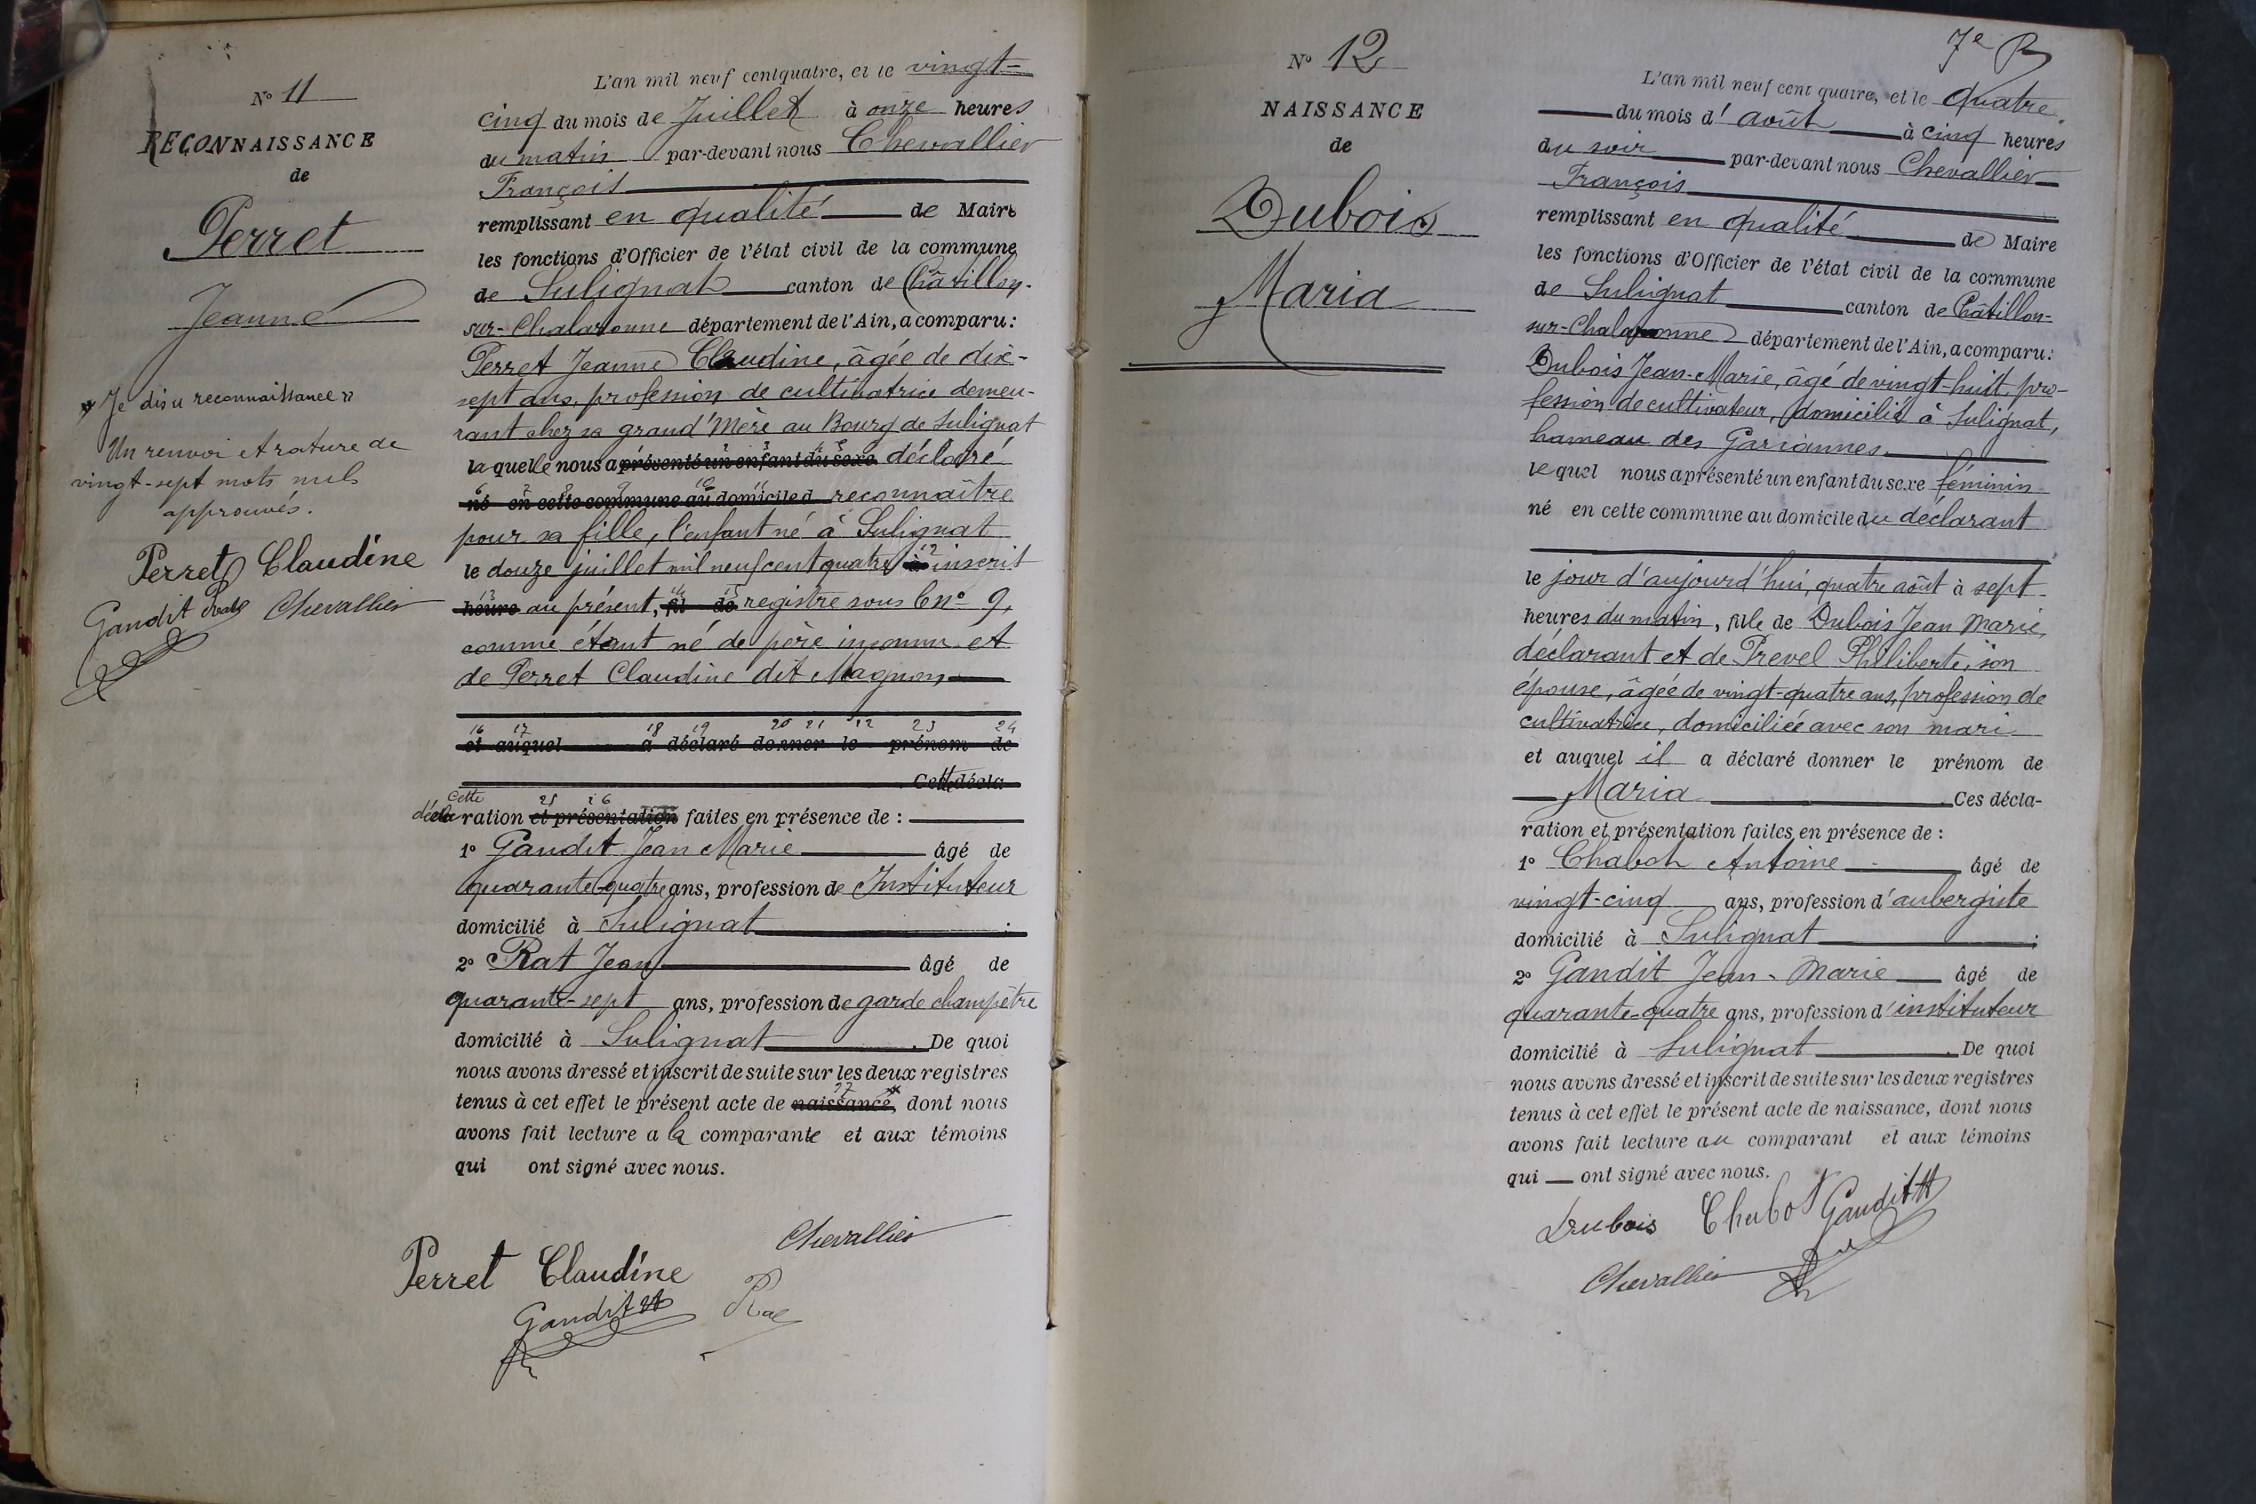 N° 11
RECONNAISSANCE
de
Perret
Jeanne
* Je dis « reconnaissance »
Un renvoi et rature de
vingt-sept mots nuls
approuvés.
Perret Claudine
Gandit Rat Chevallier
L'an mil neuf cent quatre, et le vingt-
cinq du mois de Juillet à onze heures
du matin par-devant nous Chevallier
François
remplissant en qualité de Maire
les fonctions d'Officier de l'état civil de la commune
de Sulignat canton de Châtillon-
sur-Chalaronne département de l'Ain, a comparu:
Perret Jeanne Claudine, âgée de dix-
sept ans, profession de cultivatrice demeu-
rant chez sa grand'Mère au Bourg de Sulignat
la quelle nous a présenté un enfant du sexe déclaré
né en cette commune au domicile d reconnaître
pour sa fille, l'enfant né à Sulignat
le douze juillet mil neuf cent quatre à inscrit
heure au présent, fil de registre sous le n° 9,
comme étant né de père inconnu et
de Perret Claudine dit Magnon
16 17 18 19 20 21 22 23 24
et auquel a déclaré donner le prénom de
Cette décla
Cette 25 26
déclaration et présentation faites en présence de :
1° Gandit Jean Marie âgé de
quarante-quatre ans, profession de Instituteur
domicilié à Sulignat ;
2° Rat Jean âgé de
quarante-sept ans, profession de garde champêtre
domicilié à Sulignat . De quoi
nous avons dressé et inscrit de suite sur les deux registres
tenus à cet effet le présent acte de naissance*, dont nous
avons fait lecture a la comparante et aux témoins
qui ont signé avec nous.
Chevallier
Perret Claudine
Gandit Rat
7e B
N° 12
NAISSANCE
de
Dubois
Maria
L'an mil neuf cent quatre, et le quatre
du mois d'août à cinq heures
du soir par-devant nous Chevallier
François
remplissant en qualité de Maire
les fonctions d'Officier de l'état civil de la commune
de Sulignat canton de Châtillon-
sur-Chalaronne département de l'Ain, a comparu:
Dubois Jean-Marie, âgé de vingt-huit, pro-
fession de cultivateur, domicilié à Sulignat,
hameau des Gariannes
le quel nous a présenté un enfant du sexe féminin
né en cette commune au domicile du déclarant
le jour d'aujourd'hui, quatre août à sept
heures du matin, fille de Dubois Jean Marie,
déclarant et de Prevel Philiberte, son
épouse, âgée de vingt-quatre ans, profession de
cultivatrice, domiciliée avec son mari
et auquel il a déclaré donner le prénom de
Maria Ces décla-
ration et présentation faites en présence de :
1° Chabot Antoine âgé de
vingt-cinq ans, profession d'aubergiste
domicilié à Sulignat ;
2° Gandit Jean-Marie âgé de
quarante-quatre ans, profession d'instituteur
domicilié à Sulignat . De quoi
nous avons dressé et inscrit de suite sur les deux registres
tenus à cet effet le présent acte de naissance, dont nous
avons fait lecture au comparant et aux témoins
qui ont signé avec nous.
Dubois Chabot Gandit
Chevallier